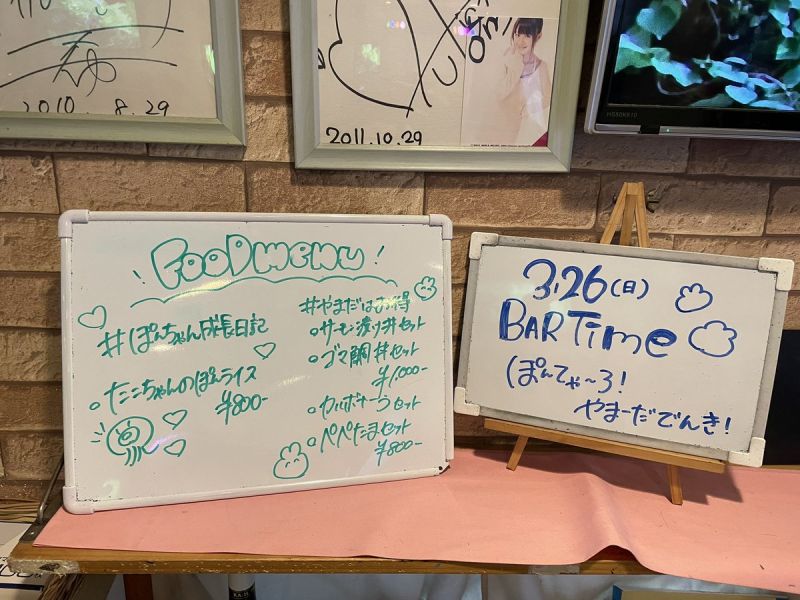 2010. 8.29
2011.10.29
HG50K610
FOOD menu!
#ぽんちゃん成長日記
・たこちゃんのぽんライス
¥800-
#やまだはお得
・サーモン漬け丼セット
・ゴマ鯛丼セット
¥1,000-
・カルボナーラセット
・ペペたまセット
¥800-
3.26(日)
BAR Time
ぽんてゃ〜3!
やまーだでんき!